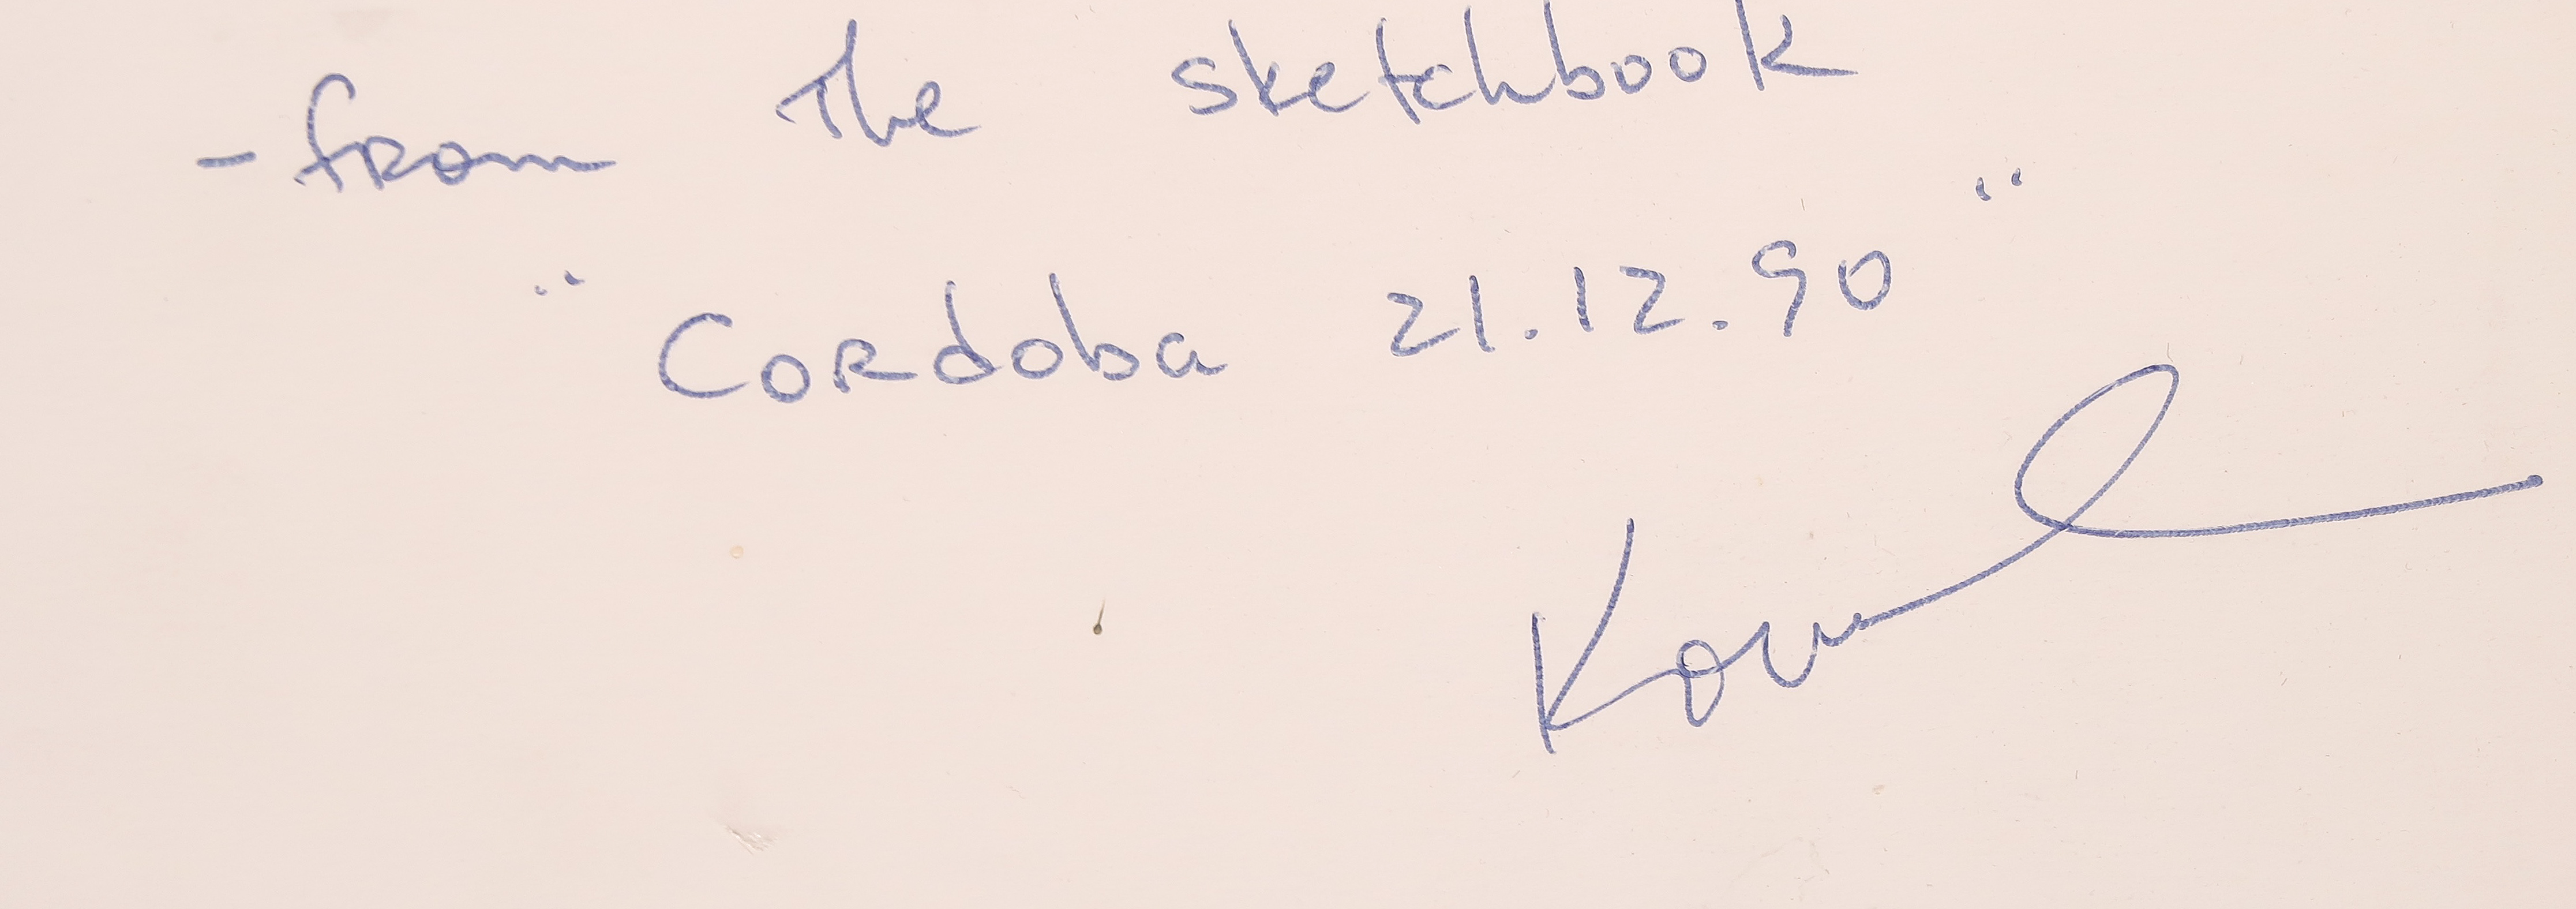 - from the sketchbook
"Cordoba 21.12.90"